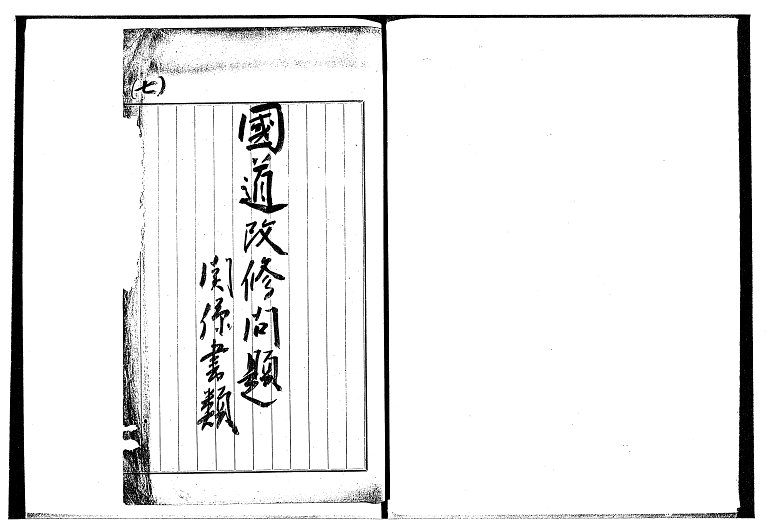 (七)
國道改修問題
関係書類